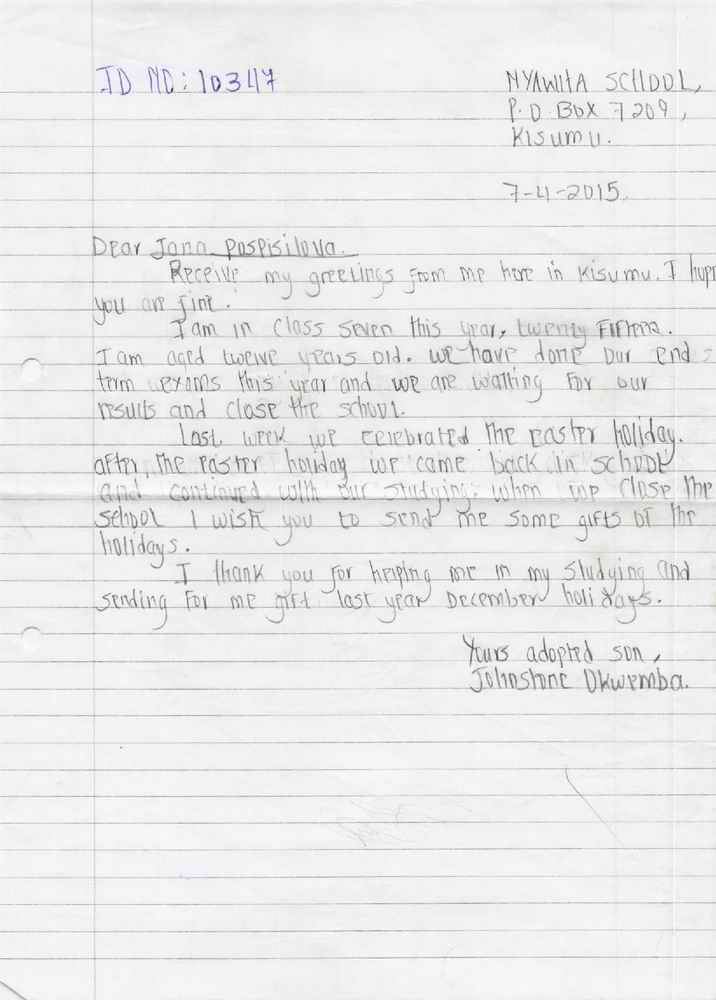 ID NO: 10347
NYAWITA SCHOOL,
P.O BOX 7209,
KISUMU.
7-4-2015.
Dear Jana Pospisilova.
Receive my greetings from me here in Kisumu. I hope
you are fine.
I am in class seven this year, twenty Fifteen.
I am aged twelve years old. we have done our end
term exams this year and we are waiting for our
results and close the school.
Last week we celebrated the easter holiday.
after, the easter holiday we came back in school
and continued with our studying. when we close the
school I wish you to send me some gifts of the
holidays.
I thank you for helping me in my studying and
sending for me gift last year December holidays.
Yours adopted son,
Johnstone Okwemba.